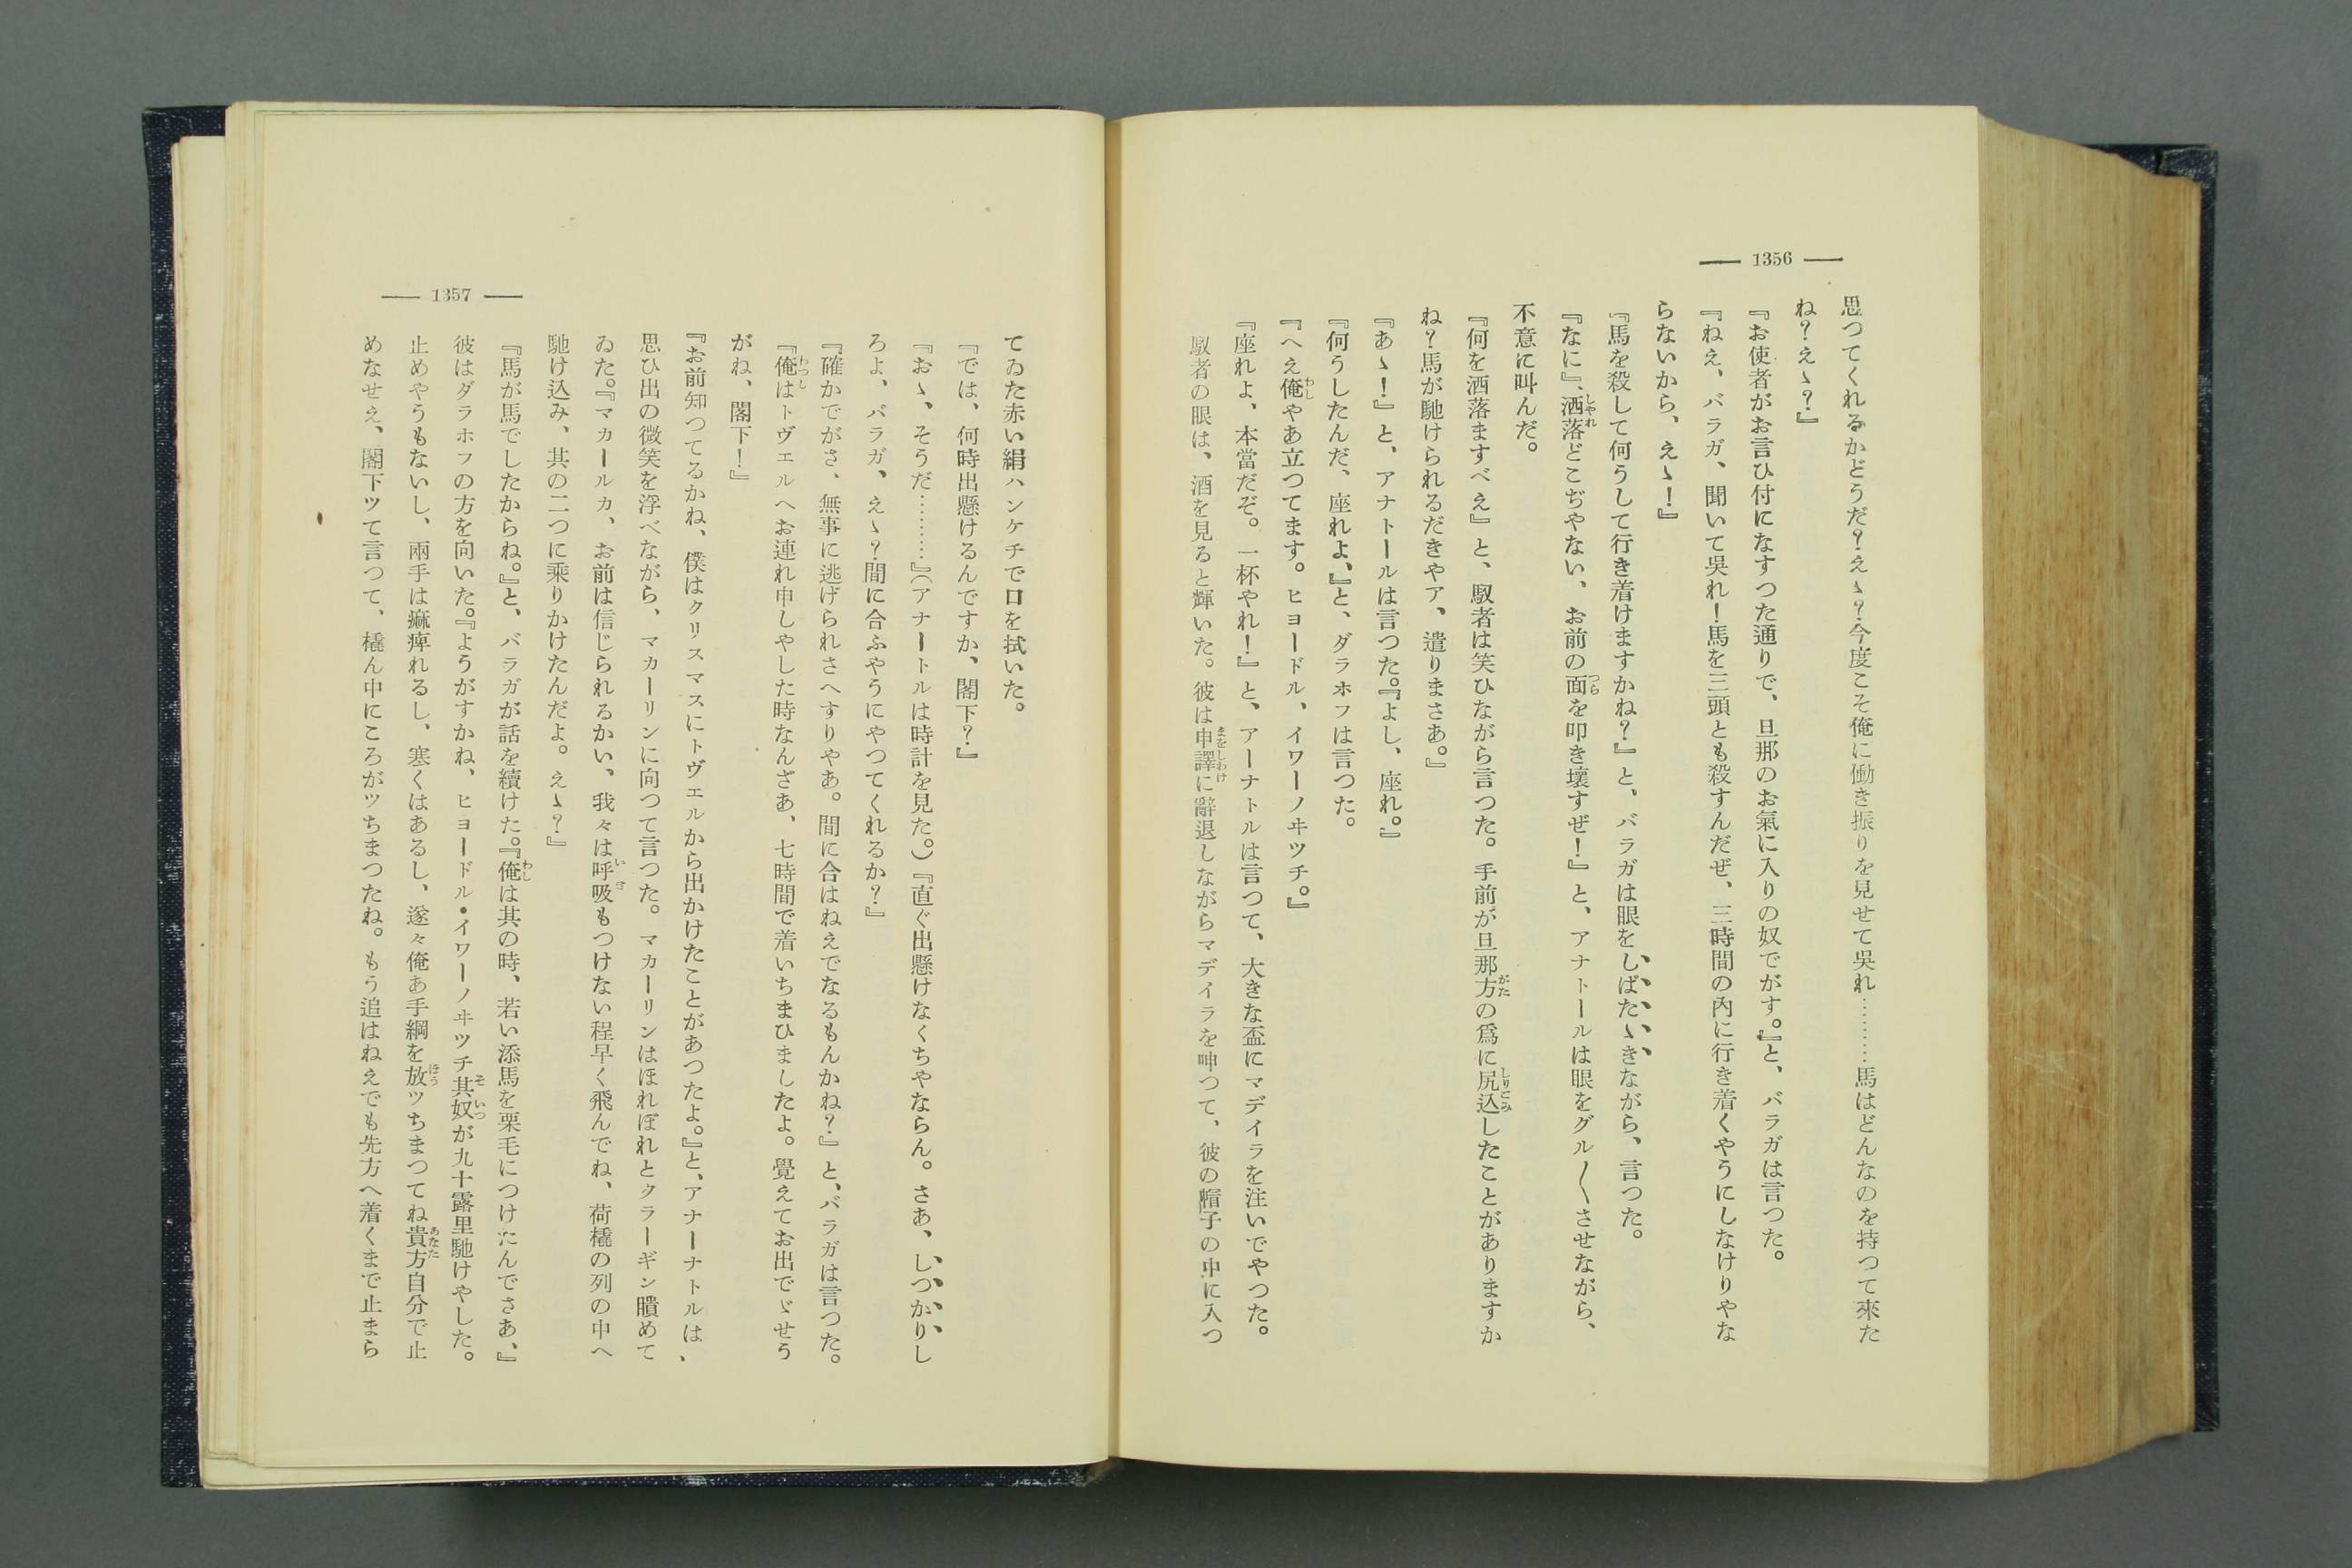 ― 1356 ―
思つてくれるかどうだ？えゝ？今度こそ俺に働き振りを見せて吳れ………馬はどんなのを持つて來た
ね？えゝ？』
『お使者がお言ひ付になすつた通りで、旦那のお氣に入りの奴でがす。』と、バラガは言つた。
『ねえ、バラガ、聞いて吳れ！馬を三頭とも殺すんだぜ、三時間の內に行き着くやうにしなけりやな
らないから、えゝ！』
『馬を殺して何うして行き着けますかね？』と、バラガは眼をしばたゝきながら、言つた。
『なに』、洒落どこぢやない、お前の面を叩き壞すぜ！』と、アナトールは眼をグル〱させながら、
不意に叫んだ。
『何を洒落ますべえ』と、馭者は笑ひながら言つた。手前が旦那方の爲に尻込したことがありますか
ね？馬が馳けられるだきやア、遣りまさあ。』
『あゝ！』と、アナトールは言つた。『よし、座れ。』
『何うしたんだ、座れよ、』と、ダラホフは言つた。
『へえ俺やあ立つてます。ヒヨードル、イワーノヰツチ。』
『座れよ、本當だぞ。一杯やれ！』と、アーナトルは言つて、大きな盃にマデイラを注いでやつた。
馭者の眼は、酒を見ると輝いた。彼は申譯に辭退しながらマデイラを呷つて、彼の帽子の中に入つ
てゐた赤い絹ハンケチで口を拭いた。
『では、何時出懸けるんですか、閣下？』
『おゝ、そうだ………』（アナートルは時計を見た。）『直ぐ出懸けなくちやならん。さあ、しつかりし
ろよ、バラガ、えゝ？間に合ふやうにやつてくれるか？』
『確かでがさ、無事に逃げられさへすりやあ。間に合はねえでなるもんかね？』と、バラガは言つた。
『俺はトヴエルへお連れ申しやした時なんざあ、七時間で着いちまひましたよ。覺えてお出でゞせう
がね、閣下！』
『お前知つてるかね、僕はクリスマスにトヴエルから出かけたことがあつたよ。』と、アナーナトルは、
思ひ出の微笑を浮べながら、マカーリンに向つて言つた。マカーリンはほれぼれとクラーギン瞶めて
ゐた。『マカールカ、お前は信じられるかい、我々は呼吸もつけない程早く飛んでね、荷橇の列の中へ
馳け込み、其の二つに乘りかけたんだよ。えゝ？』
『馬が馬でしたからね。』と、バラガが話を續けた。『俺は其の時、若い添馬を栗毛につけたんでさあ、』
彼はダラホフの方を向いた。『ようがすかね、ヒヨードル・イワーノヰツチ其奴が九十露里馳けやした。
止めやうもないし、兩手は痲痺れるし、寒くはあるし、遂々俺あ手綱を放ツちまつてね貴方自分で止
めなせえ、閣下ツて言つて、橇ん中にころがツちまつたね。もう追はねえでも先方へ着くまで止まら
― 1357 ―